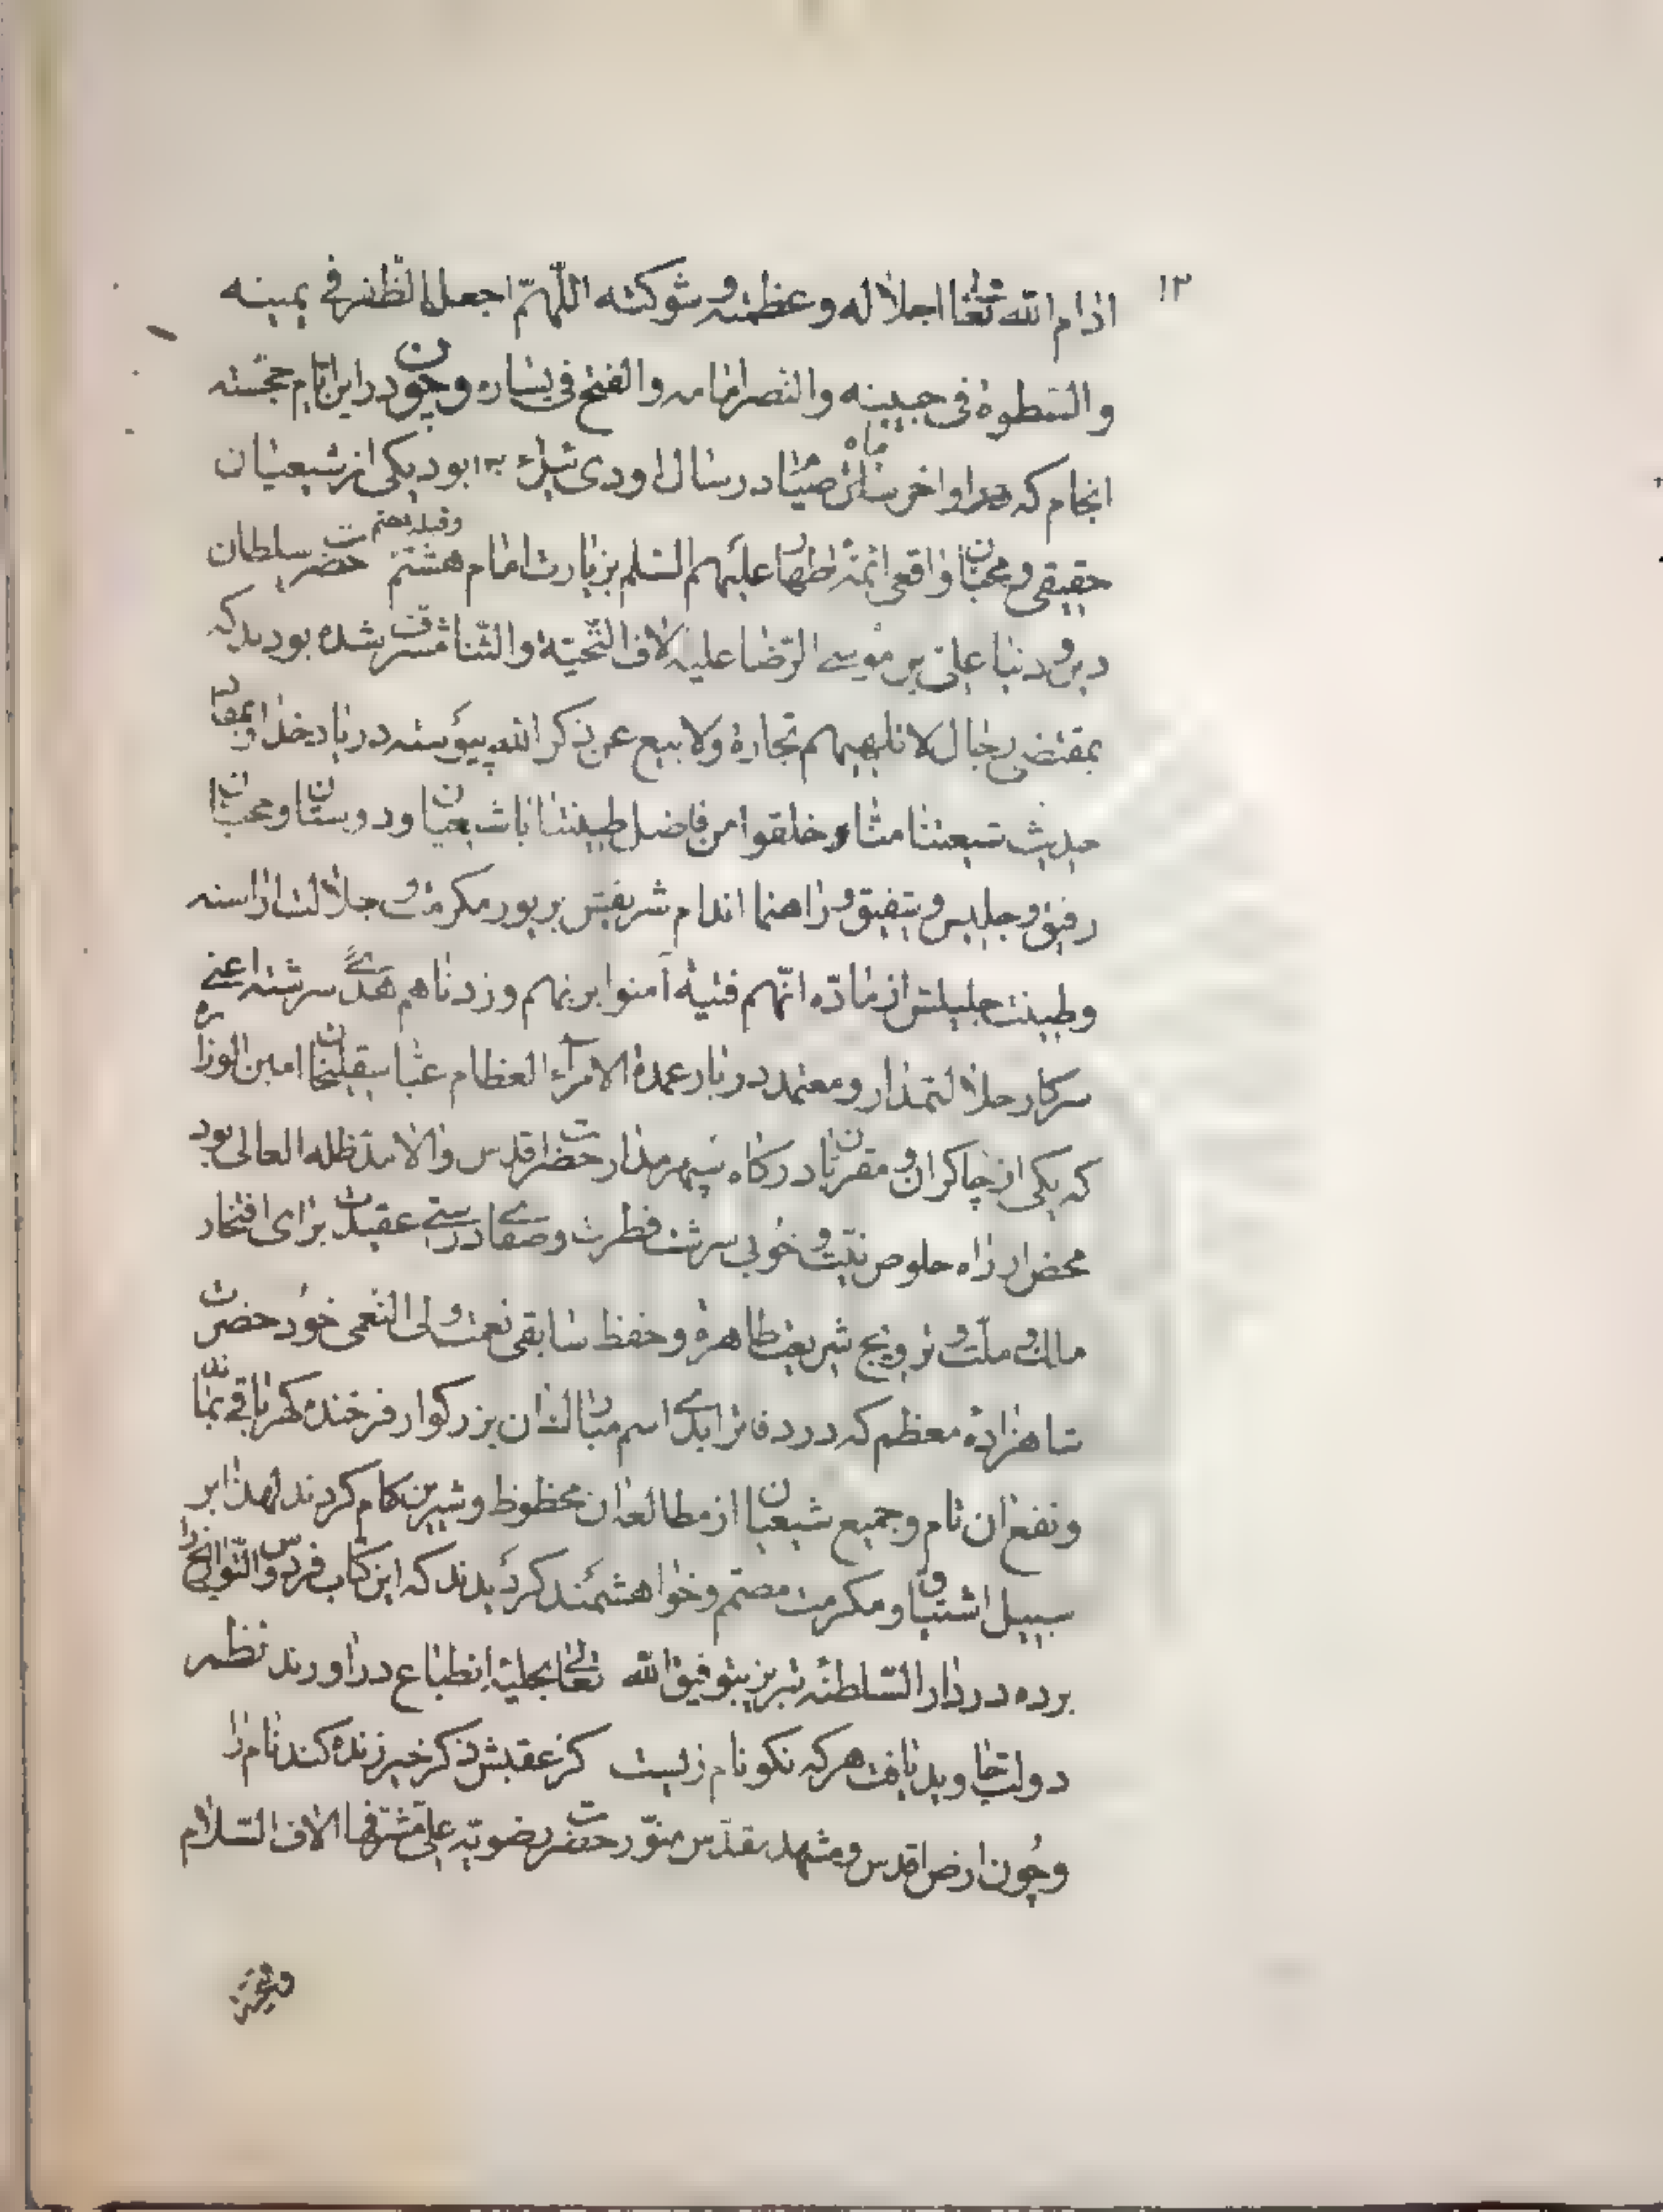 ۱۲
ادام الله تعالی اجلاله و عظمته و شوکته اللّهمّ اجعل الظّفر فی یمینه
و السّطوة فی جبینه و النصر امامه و الفتح فی یساره و چون در این ایام خجسته
انجام که در اواخر ماه صیام در سال اودی ئیل بود یکی از شیعیان
حقیقی و محبان واقعی ائمّه اطهار علیهم السّلم بزیارت امام هشتم و قبله هفتم حضرت سلطان
دین و دنیا علیّ بن موسی الرّضا علیه الاف التّحیّة و الثّنا مشرّف شده بودند که
بمقتضی رجال لا تلهیهم تجارة ولا بیع عن ذکر الله پیوسته در یاد خدا و بمفاد
حدیث شیعتنا منّا و خلقوا من فاضل طینتنا با شیعیان و دوستان و محبّان
رفیق و جلیس و شفیق و راهنما اندام شریفش بر پور مکرمت و جلالت اراسته
و طینت جلیلش از مادّه انّهم فتیة آمنوا بربّهم وزدناهم هدیً سرشته اعنی
سرکار جلالتمدار و معتمد دربار عمدة الامرآء العظام عباسقلیخان امین الوزاره
که یکی از چاکران و مقربان درکاه سپهر مدار حضرت اقدس والا مدّظله العالی بود
محض از راه خلوص نیّت و خوبی سرشت فطرت و صفای درستی عقیدت برای افتخار
مالک و ملّت و ترویج شریعت طاهره و حفظ سابقی نعمت ولی النعمی خود حضرت
شاهزاده معظم که در دفاتر ابدی اسم مبارک ان بزرکوار فرخنده کهر باقی بماند
و نفع ان تام و جمیع شیعیان از مطالعه ان محظوظ و شیرین کام کردند لهذا بر
سبیل اشتیاق و مکرمت مصمّم و خواهشمند کردیدند که این کتاب فردوس التّواریخ را
برده در دار السّلطنه تبریز بتوفیق الله تعالی بحلیه انطباع دراورند نظم
دولت جاوید یافت هر که نکو نام زیست کز عقبش ذکر خیر زنده کند نام را
و چون ارض اقدس و مشهد مقدّس منوّر حضرت رضویّه علی مشرّفها الاف السّلام